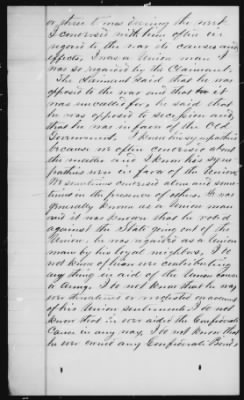 or three times during the war.
I conversed with him often in
regard to the war its causes and
effects, I was a Union man. I
was so regarded by the Claimant.
The Claimant said that he was
opposed to the war and that it
was uncalled for, he said that
he was opposed to secession and
that he was in favor of the Old
Government, I knew his sympathies
because we often conversed about
the matter and I know his sym-
pathies were in favor of the Union.
We sometimes conversed alone and some
times in the presence of others, he was
generally known as a Union man
and it was known that he voted
against the State going out of the
Union. he was regarded as a Union
man by his loyal neighbors, I do
not know of his ever contributing
any thing in aid of the Union cause
or Army. I do not know that he was
ever threatened or molested on account
of his Union sentiments. I do not
know that he ever aided the Confederate
Cause in any way, I do not know that
he ever owned any Confederate Bonds